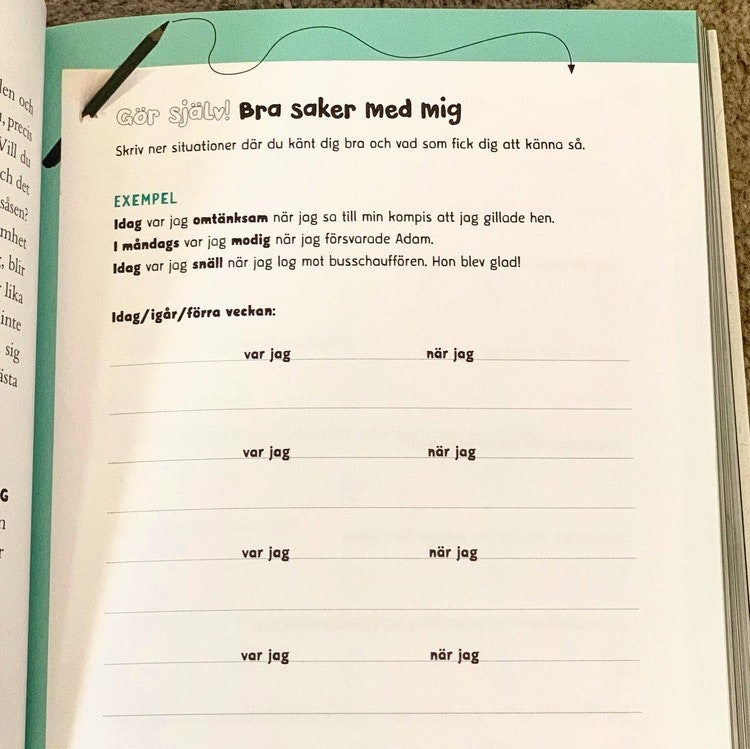 len och
, precis
Vill du
ch det
såsen?
mhet
, blir
lika
inte
sig
ästa
G
Gör själv! Bra saker med mig
Skriv ner situationer där du känt dig bra och vad som fick dig att känna så.
EXEMPEL
Idag var jag omtänksam när jag sa till min kompis att jag gillade hen.
I måndags var jag modig när jag försvarade Adam.
Idag var jag snäll när jag log mot busschauffören. Hon blev glad!
Idag/igår/förra veckan:
var jag när jag
var jag när jag
var jag när jag
var jag när jag